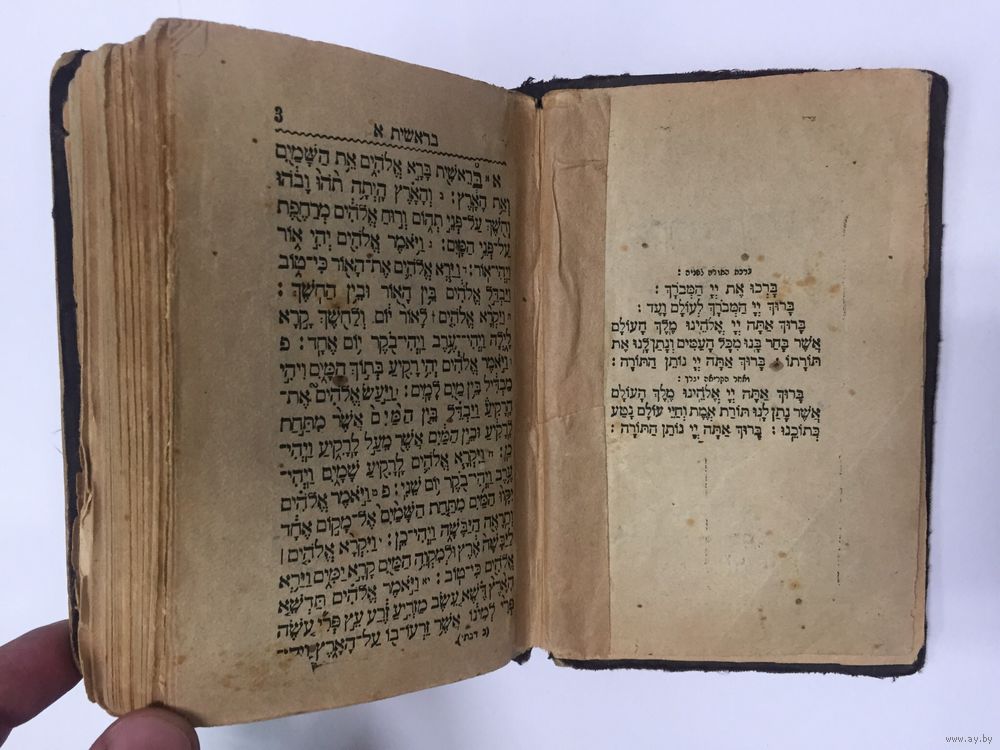 ברכת התורה לפניה :
בָּרְכוּ אֶת יְיָ הַמְבֹרָךְ :
בָּרוּךְ יְיָ הַמְבֹרָךְ לְעוֹלָם וָעֶד :
בָּרוּךְ אַתָּה יְיָ אֱלֹהֵינוּ מֶלֶךְ הָעוֹלָם
אֲשֶׁר בָּחַר בָּנוּ מִכָּל הָעַמִּים וְנָתַן לָנוּ אֶת
תּוֹרָתוֹ : בָּרוּךְ אַתָּה יְיָ נוֹתֵן הַתּוֹרָה :
ואחר הקריאה יברך :
בָּרוּךְ אַתָּה יְיָ אֱלֹהֵינוּ מֶלֶךְ הָעוֹלָם
אֲשֶׁר נָתַן לָנוּ תּוֹרַת אֱמֶת וְחַיֵּי עוֹלָם נָטַע
בְּתוֹכֵנוּ : בָּרוּךְ אַתָּה יְיָ נוֹתֵן הַתּוֹרָה :
3
בראשית א
א בְּרֵאשִׁית בָּרָא אֱלֹהִים אֵת הַשָּׁמַיִם
וְאֵת הָאָרֶץ : ב וְהָאָרֶץ הָיְתָה תֹהוּ וָבֹהוּ
וְחֹשֶׁךְ עַל־פְּנֵי תְהוֹם וְרוּחַ אֱלֹהִים מְרַחֶפֶת
עַל־פְּנֵי הַמָּיִם : ג וַיֹּאמֶר אֱלֹהִים יְהִי אוֹר
וַיְהִי־אוֹר : ד וַיַּרְא אֱלֹהִים אֶת־הָאוֹר כִּי־טוֹב
וַיַּבְדֵּל אֱלֹהִים בֵּין הָאוֹר וּבֵין הַחֹשֶׁךְ :
ה וַיִּקְרָא אֱלֹהִים ׀ לָאוֹר יוֹם וְלַחֹשֶׁךְ קָרָא
לָיְלָה וַיְהִי־עֶרֶב וַיְהִי־בֹקֶר יוֹם אֶחָד : פ
ו וַיֹּאמֶר אֱלֹהִים יְהִי רָקִיעַ בְּתוֹךְ הַמָּיִם וִיהִי
מַבְדִּיל בֵּין מַיִם לָמָיִם : ז וַיַּעַשׂ אֱלֹהִים אֶת־
הָרָקִיעַ וַיַּבְדֵּל בֵּין הַמַּיִם אֲשֶׁר מִתַּחַת
לָרָקִיעַ וּבֵין הַמַּיִם אֲשֶׁר מֵעַל לָרָקִיעַ וַיְהִי־
כֵן : ח וַיִּקְרָא אֱלֹהִים לָרָקִיעַ שָׁמָיִם וַיְהִי־
עֶרֶב וַיְהִי־בֹקֶר יוֹם שֵׁנִי : פ ט וַיֹּאמֶר אֱלֹהִים
יִקָּווּ הַמַּיִם מִתַּחַת הַשָּׁמַיִם אֶל־מָקוֹם אֶחָד
וְתֵרָאֶה הַיַּבָּשָׁה וַיְהִי־כֵן : י וַיִּקְרָא אֱלֹהִים ׀
לַיַּבָּשָׁה אֶרֶץ וּלְמִקְוֵה הַמַּיִם קָרָא יַמִּים וַיַּרְא
אֱלֹהִים כִּי־טוֹב : יא וַיֹּאמֶר אֱלֹהִים תַּדְשֵׁא
הָאָרֶץ דֶּשֶׁא עֵשֶׂב מַזְרִיעַ זֶרַע עֵץ פְּרִי עֹשֶׂה
פְּרִי לְמִינוֹ אֲשֶׁר זַרְעוֹ־בוֹ עַל־הָאָרֶץ וַיְהִי־
www.ay.by